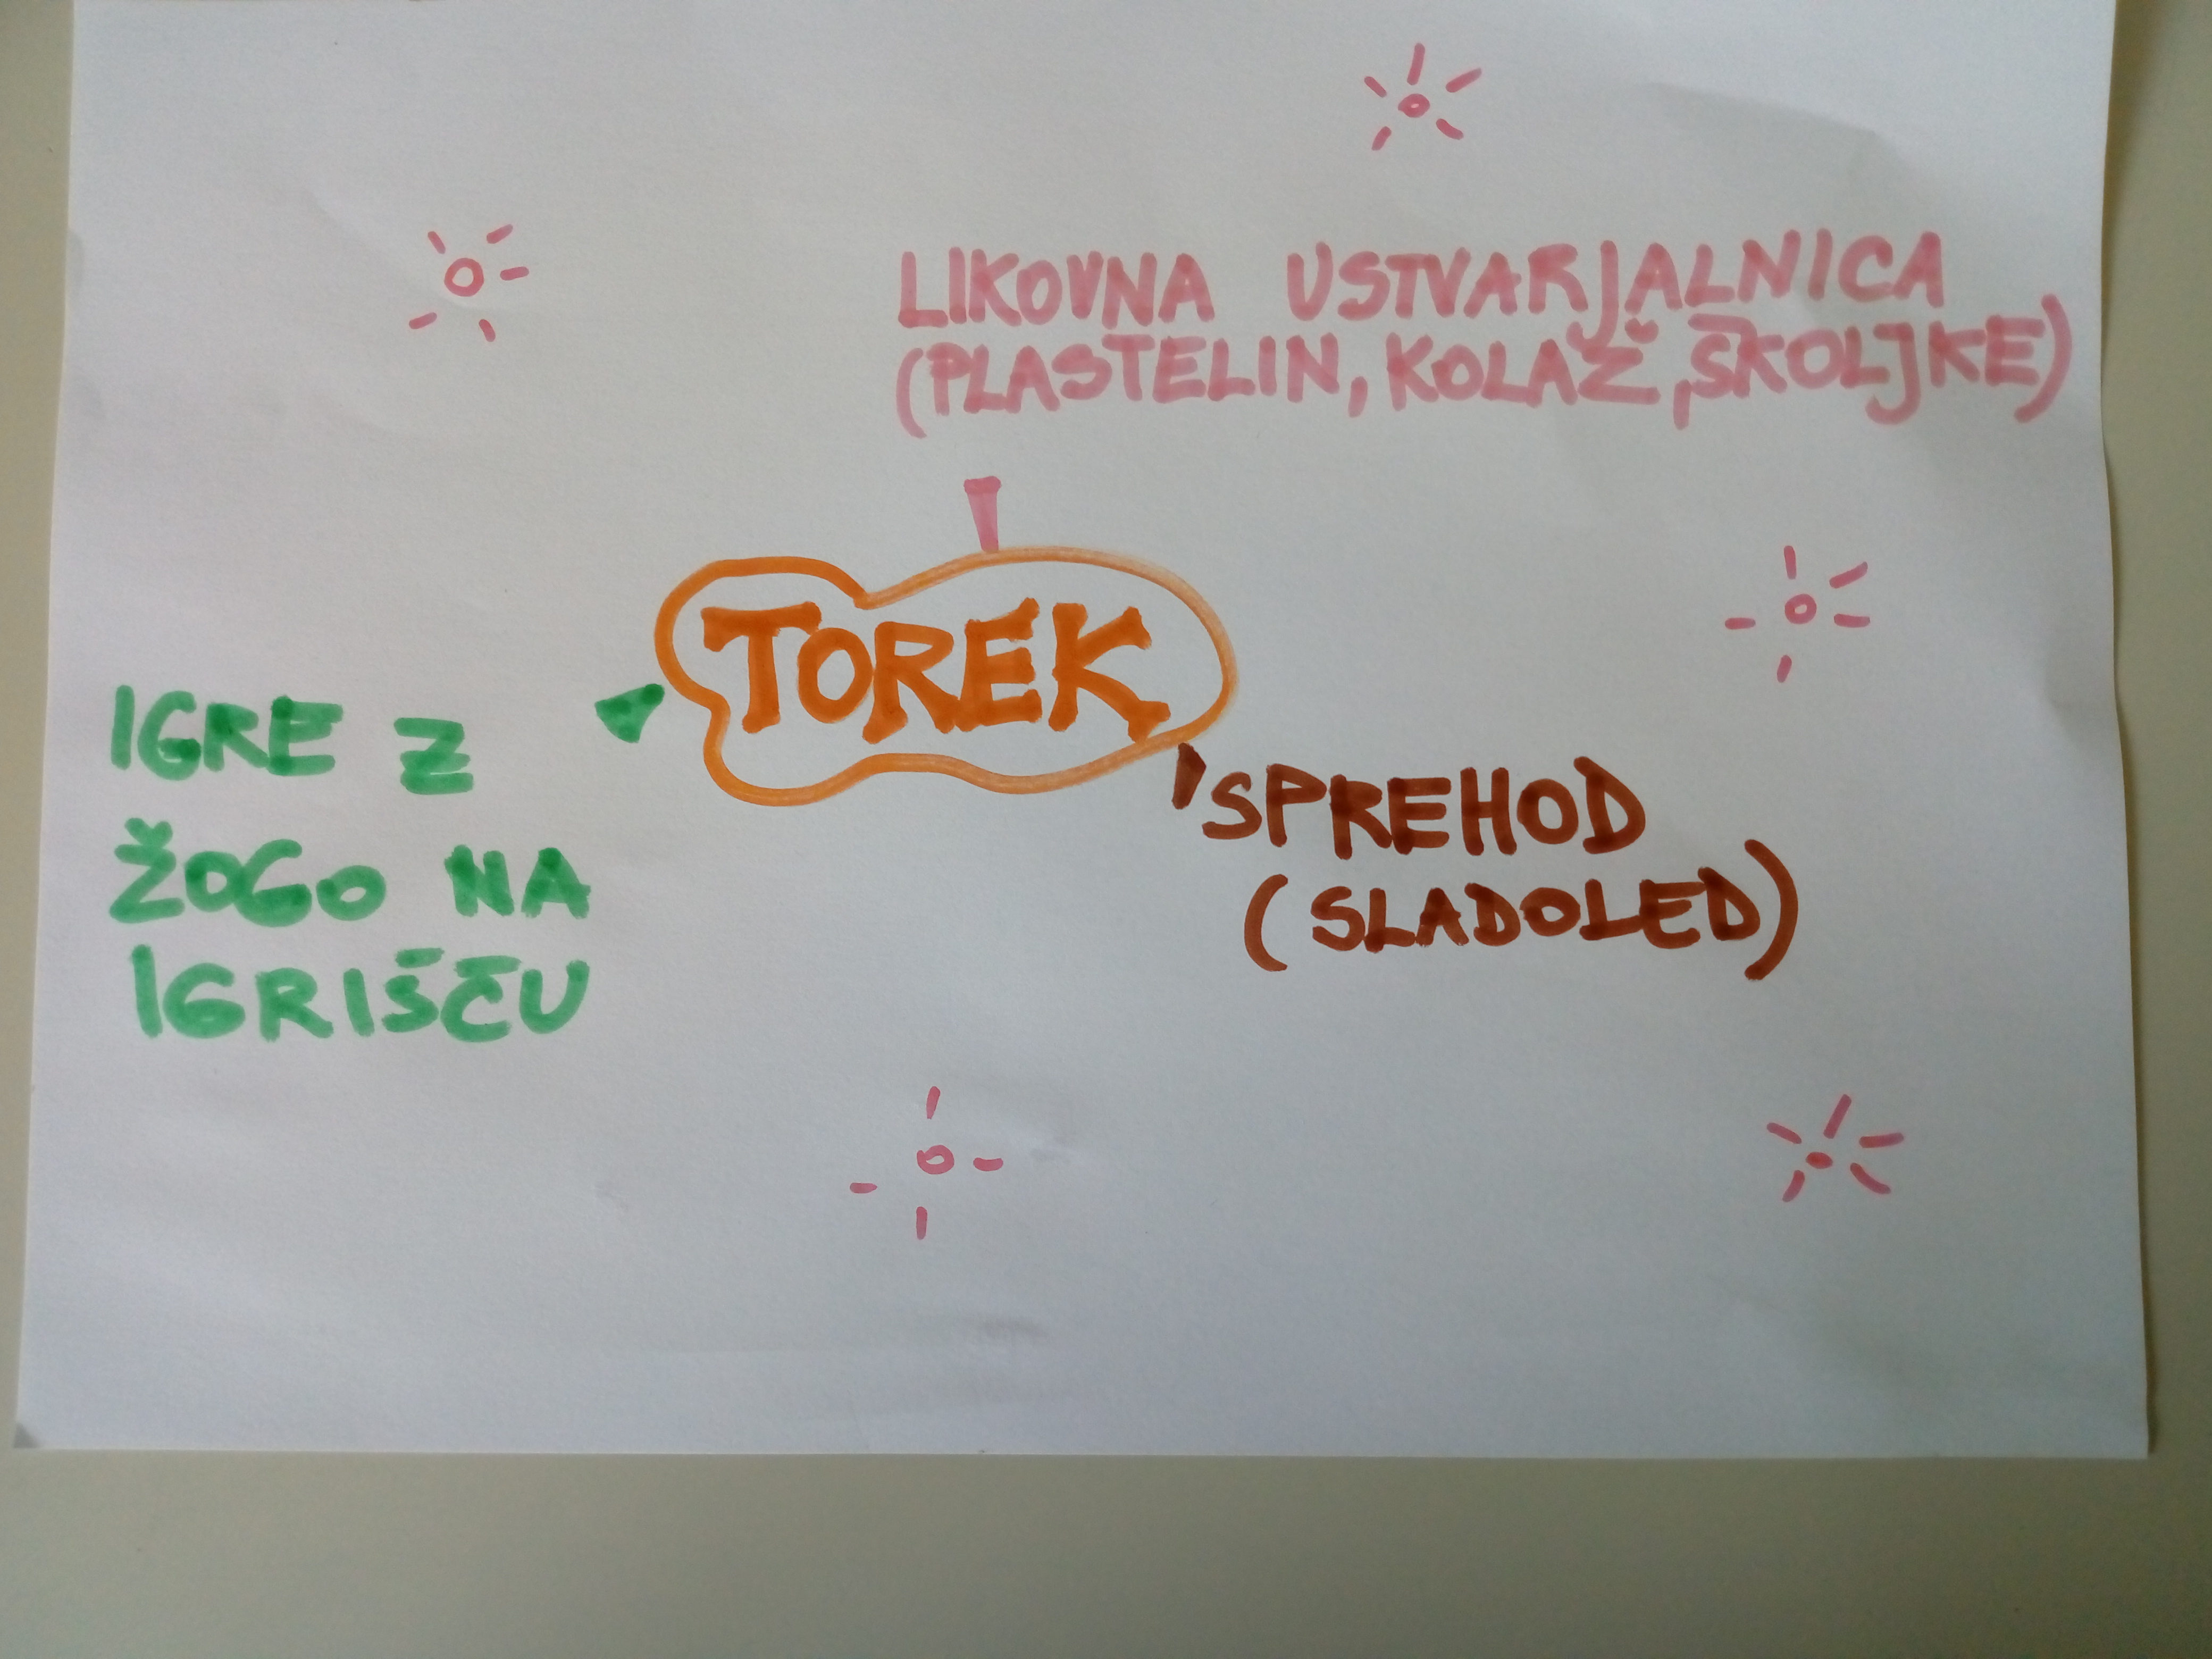 LIKOVNA USTVARJALNICA
(PLASTELIN, KOLAŽ, ŠKOLJKE)
TOREK
IGRE Z
ŽOGO NA
IGRIŠČU
SPREHOD
(SLADOLED)